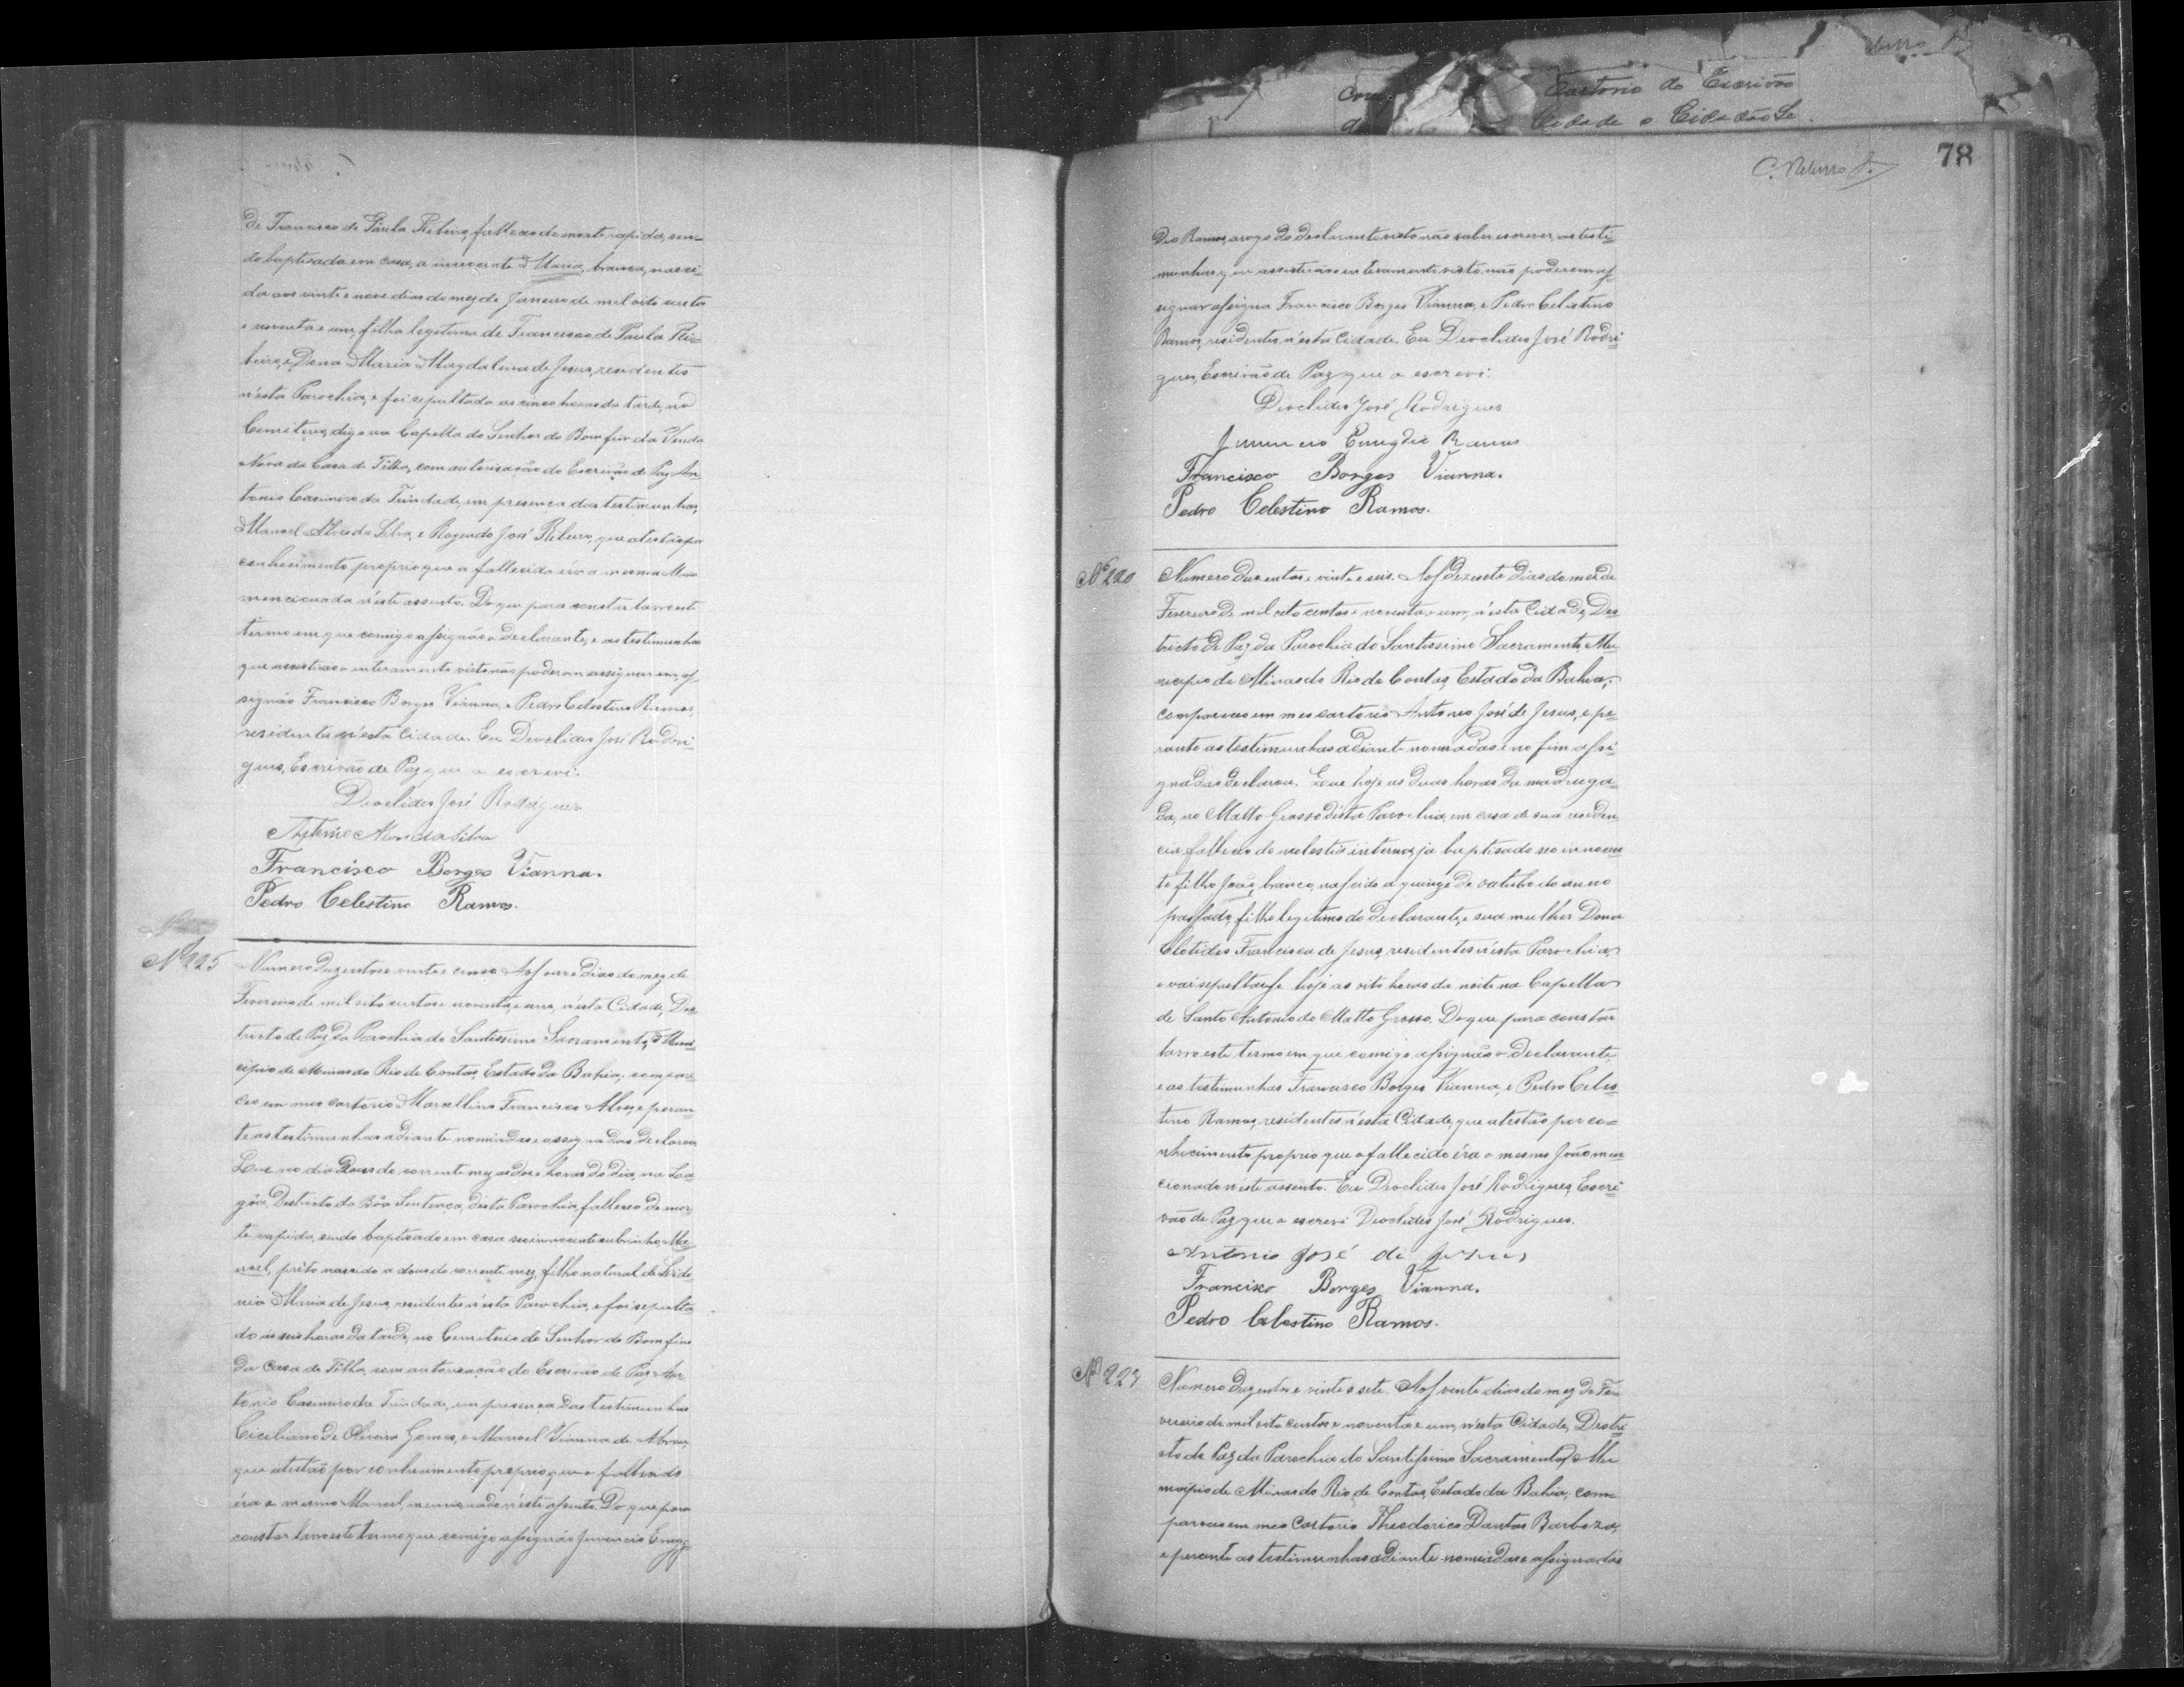 de Francisco de Paula Ribeiro, falleceo de morte rapida, sen-
do baptisada em casa, a innocente Maria, branca, nasci-
da aos vinte e nove dias do mez de Janeiro de mil oito centos
e noventa e um, filha legitima de Francisco de Paula Ri-
beiro, e Dona Maria Magdalena de Jesus, residentes
n'esta Parochia, e foi sepultada as cinco horas da tarde, no
Cemiterio, digo na Capella do Senhor do Bomfim da Venda
Nova da Casa de Tilha, com autorisação do Escrivão de Paz An-
tonio Casimiro da Trindade, em presença das testimunhas,
Manoel Alves da Silva, e Rogerdo José Ribeiro, que atestão por
conhecimento proprio que a fallecida éra a mesma Maria
mencionada n'este assento. Do que para constar lavro este
termo em que comigo assignão o declarante, e as testimunhas
que assistirão o interamento visto não poderem assignarem, as-
signão Francisco Borges Vianna, e Pedro Celestino Ramos,
residentes n'esta Cidade. Eu Deoclides José Rodri-
gues, Escrivão de Paz que o escrevi.
Deoclides José Rodrigues
Alves da Silva
Francisco Borges Vianna.
Pedro Celestino Ramos.
Nº 225
Numero duzentos e vinte e cinco. Aos onze dias do mez de
Fevereiro de mil oito centos e noventa e um, n'esta Cidade, Des-
tricto de Paz da Parochia do Santissimo Sacramento, Muni-
cipio de Minas do Rio de Contas, Estado da Bahia, compare-
ceo em meo cartorio Marcellino Francisco Alves, e peran-
te as testimunhas adiante nomiadas e assignadas declarou
Que no dia dous do corrente mez as doze horas do dia, na La-
gôa, Destricto da Bôa Sentença, d'esta Parochia, falleceo de mor-
te rapida, sendo baptisado em casa seo innocente subrinho, Ma-
noel, prêto nascido a dous do corrente mez, filho natural de
Maria de Jesus, residentes n'esta Parochia, e foi sepulta-
do as seis horas da tarde, no Cemiterio do Senhor do Bomfim
da Casa de Tilha, com autorisação do Escrivão de Paz An-
tonio Casimiro da Trindade, em presença das testimunhas
Ciciliano de Oliveira Gomes, e Manoel Vianna de Abreu,
que atestão por conhecimento proprio que o fallecido
éra o mesmo Manoel, mencionado n'este assento. Do que para
constar lavro este termo que comigo assignão Juvencio Emyg-
78
C. Ribeiro
Cartorio do Escrivão
Cidade o Cidadão
dio Ramos, a rogo do declarante visto não saber escrever, as testi-
munhas que assistirão o interamento visto não poderem as-
signar assigna Francisco Borges Vianna, e Pedro Celestino
Ramos, residentes n'esta Cidade. Eu Deoclides José Rodri-
gues, Escrivão de Paz que o escrevi.
Deoclides José Rodrigues
Juvencio Emygdio Ramos
Francisco Borges Vianna.
Pedro Celestino Ramos.
Nº 226
Numero duzentos e vinte e seis. Aos dezesete dias do mez de
Fevereiro de mil oito centos e noventa e um, n'esta Cidade, Des-
tricto de Paz da Parochia do Santissimo Sacramento, Mu-
nicipio de Minas do Rio de Contas, Estado da Bahia,
compareceo em meo cartorio Antonio José de Jesus, e pe-
rante as testimunhas adiante nomiadas e no fim assi-
gnadas declarou. Que hoje as duas horas da madruga-
da, no Matto Grosso d'esta Parochia, em casa de sua residen-
cia falleceo de molestia interna, ja baptisado seo innocen-
te filho João, branco, nascido a quinze de outubro do anno
passado, filho legitimo do declarante, e sua mulher Dona
Clotides Francisca de Jesus, residentes n'esta Parochia,
e vai sepultar-se hoje as oito horas da noite na Capella
de Santo Antonio do Matto Grosso. Do que para constar
lavro este termo em que comigo assignão o declarante,
e as testimunhas Francisco Borges Vianna, e Pedro Celes-
tino Ramos, residentes n'esta Cidade, que atestão por co-
nhecimento proprio que o fallecido éra o mesmo João men-
cionado n'este assento. Eu Deoclides José Rodrigues, Escri-
vão de Paz que o escrevi Deoclides José Rodrigues.
Antonio José de Jesus
Francisco Borges Vianna.
Pedro Celestino Ramos.
Nº 227
Numero duzentos e vinte e sete. Aos vinte dias do mez de Fe-
vereiro de mil oito centos e noventa e um, n'esta Cidade, Destri-
cto de Paz da Parochia do Santissimo Sacramento, Mu-
nicipio de Minas do Rio de Contas, Estado da Bahia, com-
pareceo em meo Cartorio Theodorico Dantas Barboza,
e perante as testimunhas adiante nomiadas e assignadas